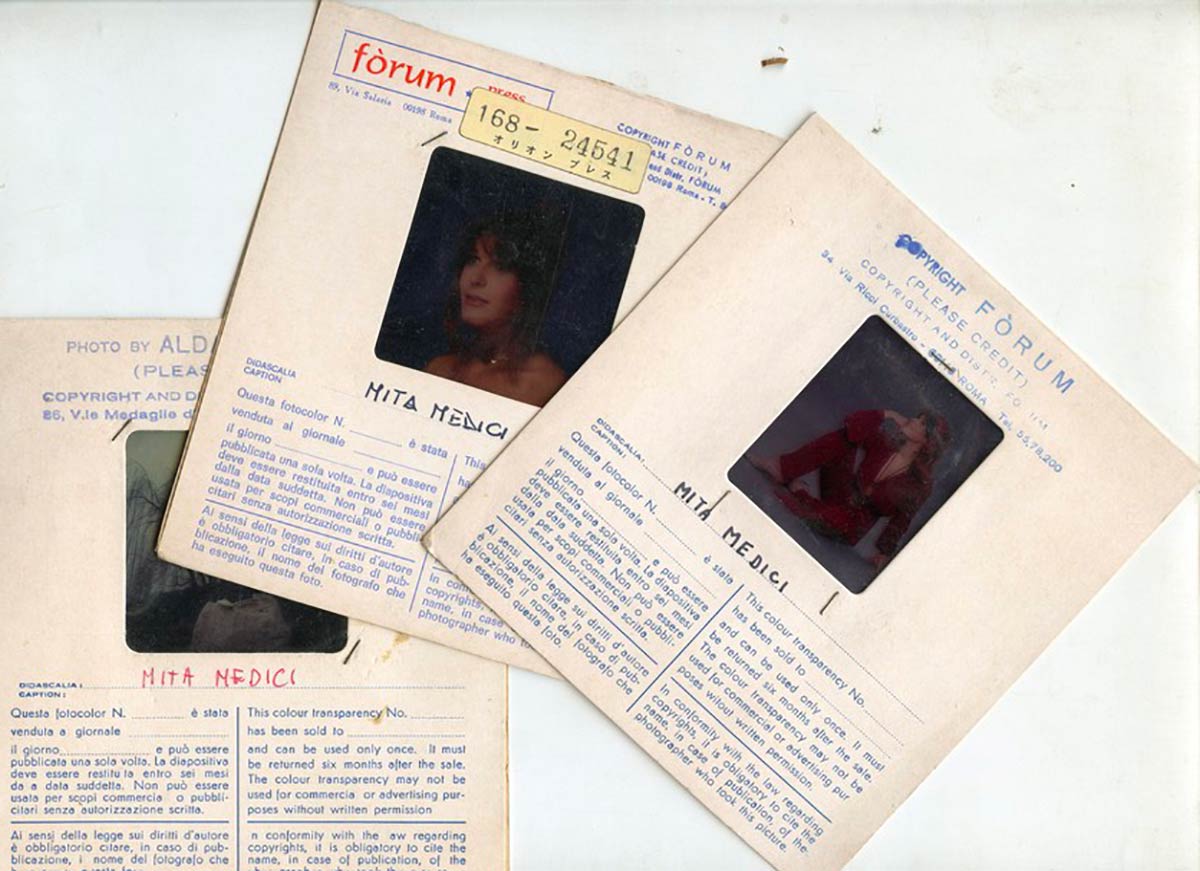 fòrum
press
89, Via Salaria 00198 Roma
168- 24541
オリオン プレス
COPYRIGHT FÒRUM
ASE CREDIT)
and Distr. FÒRUM
00198 Roma - T.
DIDASCALIA
CAPTION
MITA MEDICI
Questa fotocolor N. è stata
venduta al giornale
il giorno e può essere
pubblicata una sola volta. La diapositiva
deve essere restituita entro sei mesi
dalla data suddetta. Non può essere
usata per scopi commerciali o pubbli-
citari senza autorizzazione scritta.
Ai sensi della legge sui diritti d'autore
è obbligatorio citare, in caso di pub-
blicazione, il nome del fotografo che
ha eseguito questa foto.
This
has
In
copyrights,
name, in case
photographer who
COPYRIGHT FÒRUM
(PLEASE CREDIT)
COPYRIGHT AND DISTR.
34, Via Ricci Curbastro - ROMA Tel. 55.78.200
DIDASCALIA:
CAPTION:
MITA MEDICI
Questa fotocolor N. è stata
venduta al giornale
il giorno e può essere
pubblicata una sola volta. La diapositiva
deve essere restituita entro sei mesi
dalla data suddetta. Non può essere
usata per scopi commerciali o pubbli-
citari senza autorizzazione scritta.
Ai sensi della legge sui diritti d'autore
è obbligatorio citare, in caso di pub-
blicazione, il nome del fotografo che
ha eseguito questa foto.
This colour transparency No.
has been sold to
and can be used only once. It must
be returned six months after the sale.
The colour transparency may not be
used for commercial or advertising pur
poses witout written permission.
In conformity with the law regarding
copyrights, it is obligatory to cite the
name, in case of publication, of the
photographer who took this picture.
PHOTO BY ALD
(PLEAS
COPYRIGHT AND D
86, V.le Medaglie d
MITA MEDICI
DIDASCALIA:
CAPTION:
Questa fotocolor N. è stata
venduta a giornale
il giorno e può essere
pubblicata una sola volta. La diapositiva
deve essere restituita entro sei mesi
da a data suddetta. Non può essere
usata per scopi commercia o pubbli-
citari senza autorizzazione scritta.
Ai sensi della legge sui diritti d'autore
è obbligatorio citare, in caso di pub-
blicazione, i nome del fotografo che
This colour transparency No.
has been sold to
and can be used only once. It must
be returned six months after the sale.
The colour transparency may not be
used for commercia or advertising pur-
poses without written permission
n conformity with the aw regarding
copyrights, it is obligatory to cite the
name, in case of publication, of the